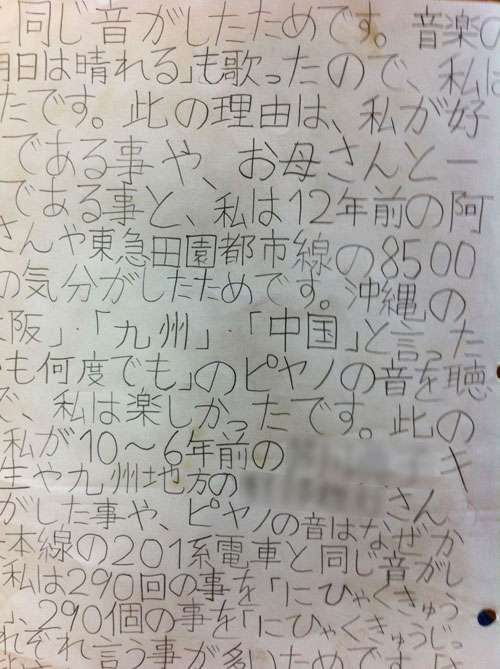 同じ音がしたためです。音楽の
明日は晴れる」も歌ったので、私は
たです。此の理由は、私が好
である事や、お母さんと一
である事と、私は12年前の阿
さんや東急田園都市線の8500
の気分がしたためです。沖縄の
阪」・「九州」・「中国」と言った
も何度でも」のピヤノの音を聴
で、私は楽しかったです。此の
私が10〜6年前の キ
生や九州地方の さん
がした事や、ピヤノの音はなぜか
本線の201系電車と同じ音がし
私は290回の事を「にひゃくきゅう
、290個の事を「にひゃくきゅうじっ
れぞれ言う事が多いためです